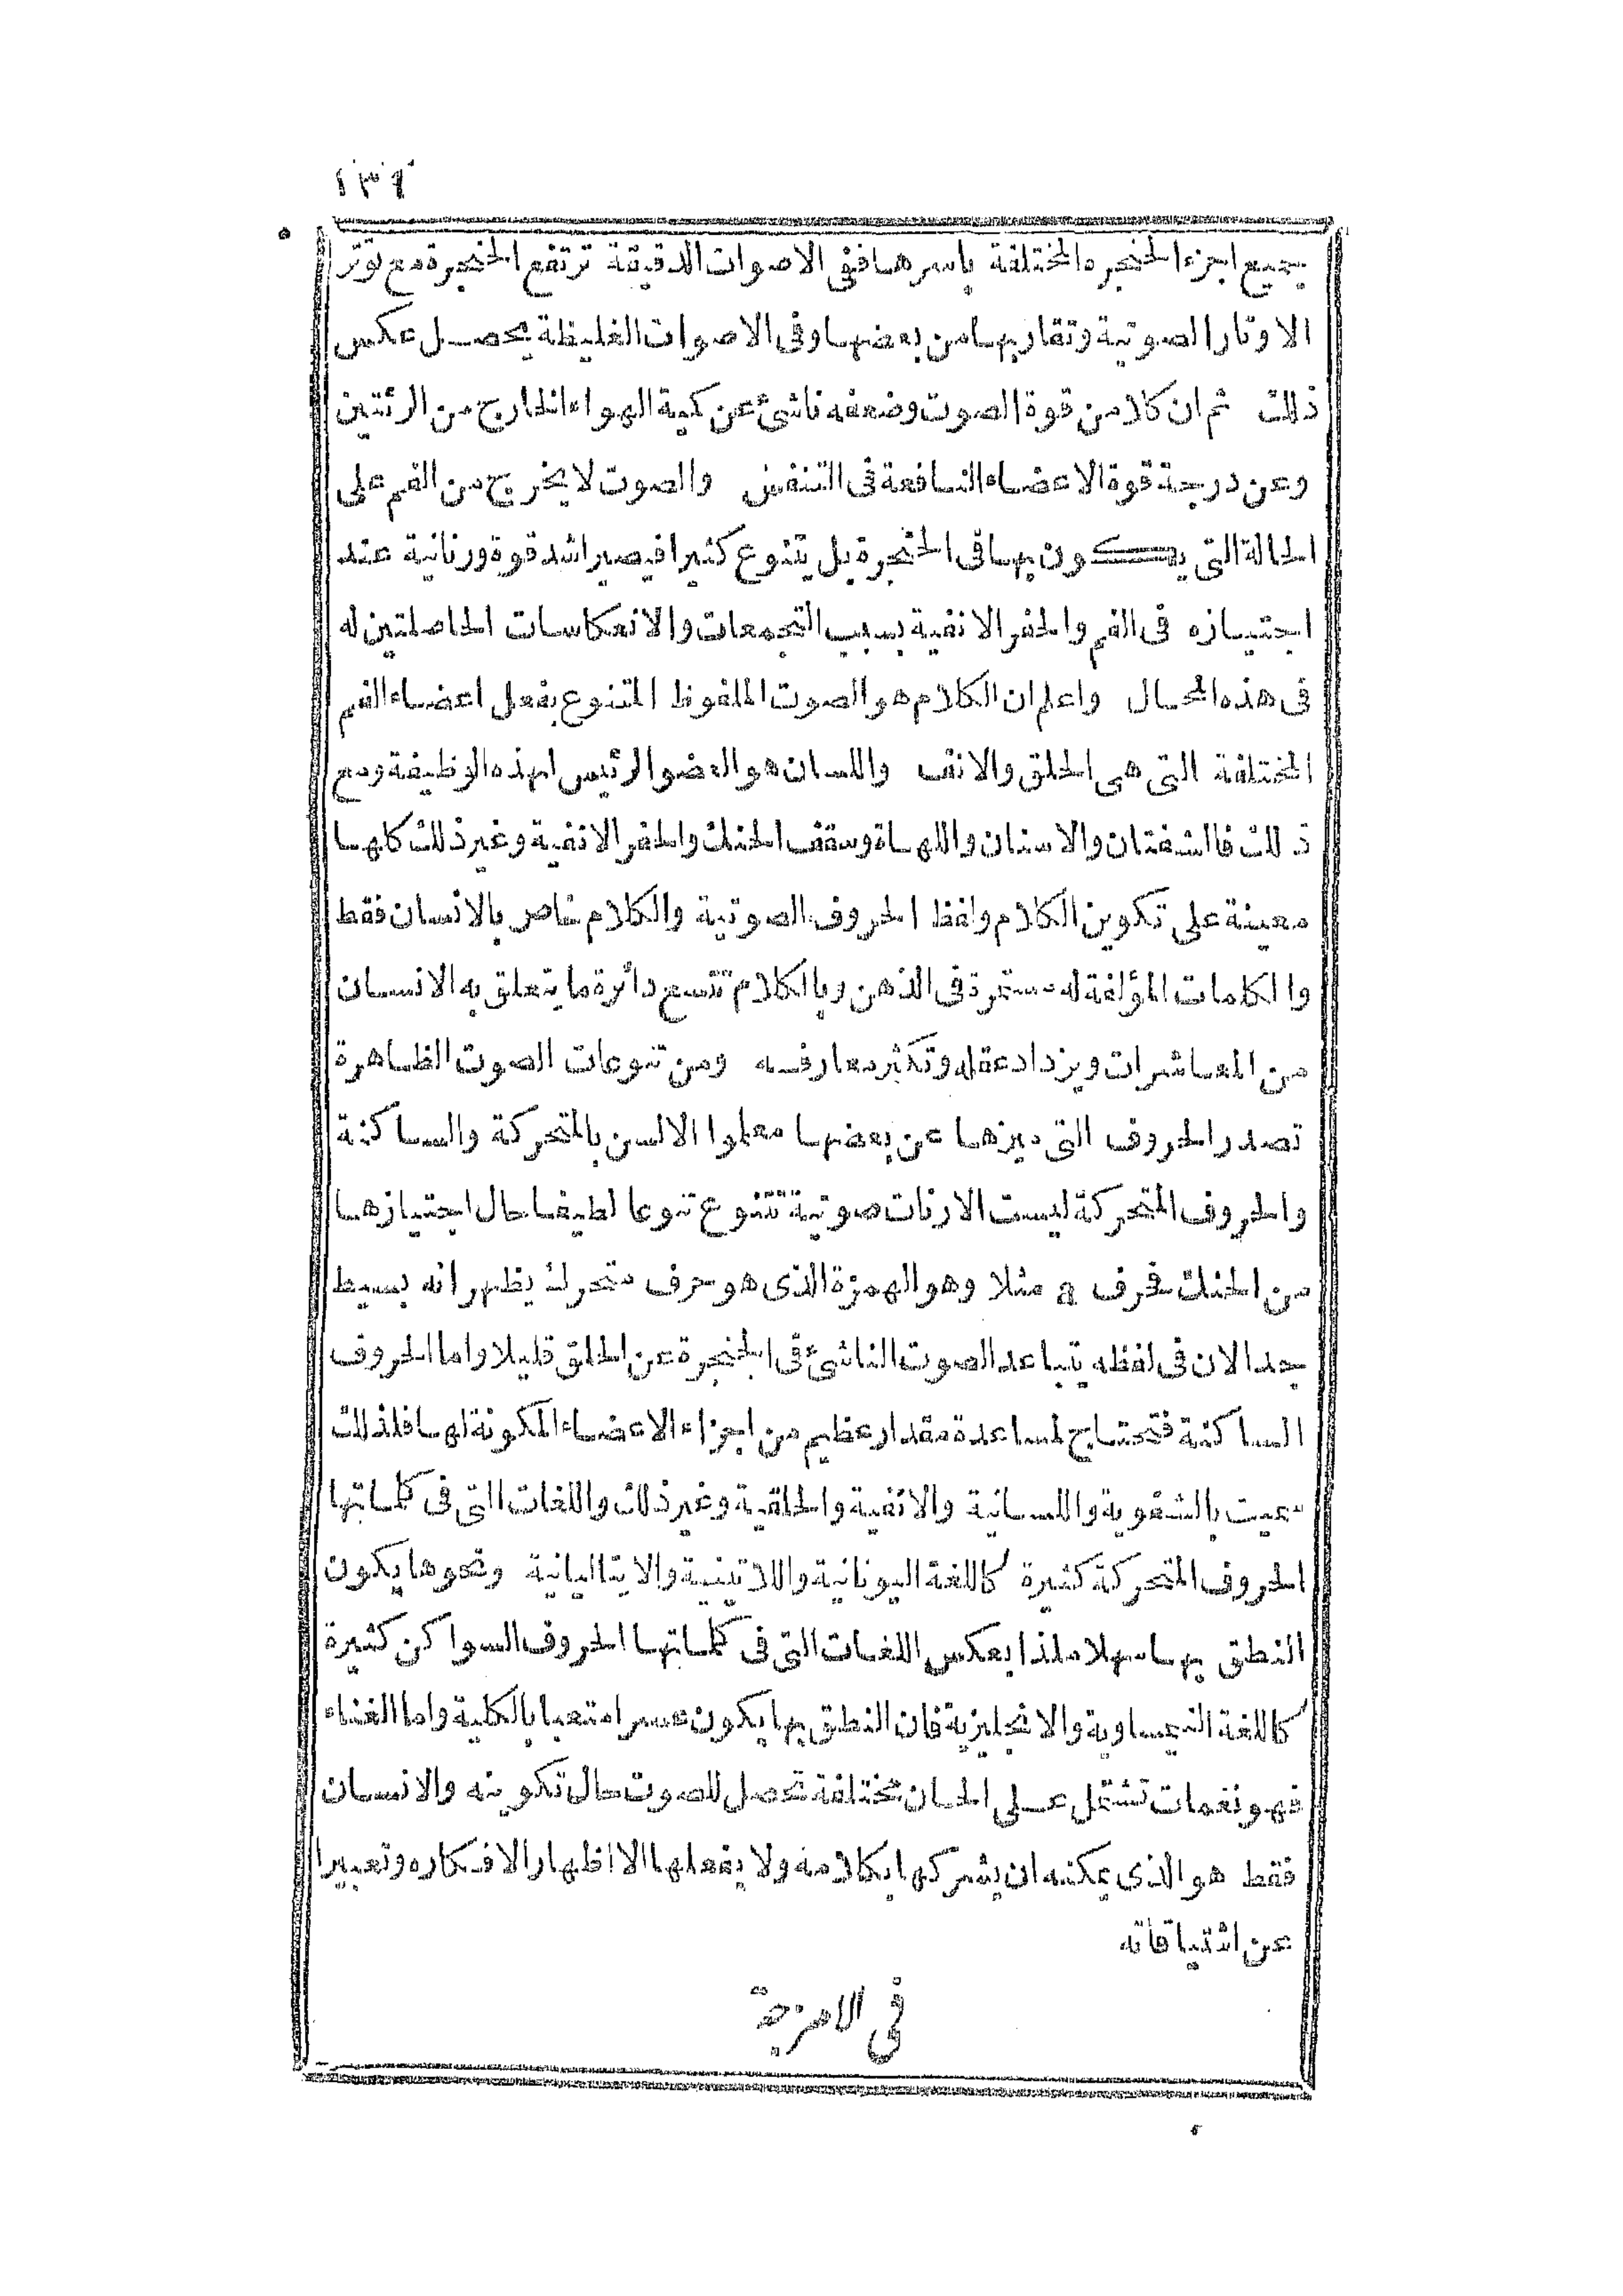 ١٣٩
بجميع اجزاء الحنجره المختلفة باسرها ففى الاصوات الدقيقة ترتفع الحنجرة مع توتر
الاوتار الصوتية وتقاربها من بعضها وفى الاصوات الغليظة يحصل عكس
ذلك ثم ان كلا من قوة الصوت وضعفه ناشئ عن كمية الهواء الخارج من الرئتين
وعن درجة قوة الاعضاء النافعة فى التنفس والصوت لا يخرج من الفم على
الحالة التى يكون بها فى الحنجرة بل يتنوع كثيرا فيصير اشد قوة ورنانية عند
اجتيازه فى الفم والحفر الانفية بسبب التجمعات والانعكاسات الحاصلتين له
فى هذه المحال واعلم ان الكلام هو الصوت الملفوظ المتنوع بفعل اعضاء الفم
المختلفة التى هى الحلق والانف واللسان هو العضو الرئيس لهذه الوظيفة ومع
ذلك فالشفتان والاسنان واللهاة وسقف الحنك والحفر الانفية وغير ذلك كلها
معينة على تكوين الكلام ولفظ الحروف الصوتية والكلام خاص بالانسان فقط
والكلمات المؤلفة له مستقرة فى الذهن وبالكلام تتسع دائرة ما يتعلق به الانسان
من المعاشرات ويزداد عقله وتكثر معارفه ومن تنوعات الصوت الظاهرة
تصدر الحروف التى ميزها عن بعضها معلموا الالسن بالمتحركة والساكنة
والحروف المتحركة ليست الا رنات صوتية تتنوع تنوعا لطيفا حال اجتيازها
من الحنك فحرف a مثلا وهو الهمزة الذى هو حرف متحرك يظهر انه بسيط
جدا لان فى لفظه يتباعد الصوت الناشئ فى الحنجرة عن الحلق قليلا واما الحروف
الساكنة فتحتاج لمساعدة مقدار عظيم من اجزاء الاعضاء المكونة لها فلذلك
سميت بالشفوية واللسانية والانفية والحلقية وغير ذلك واللغات التى فى كلماتها
الحروف المتحركة كثيرة كاللغة اليونانية واللاتينية والايتاليانية ونحوها يكون
النطق بها سهلا ملذا بعكس اللغات التى فى كلماتها الحروف السواكن كثيرة
كاللغة النمساوية والانجليزية فان النطق بها يكون عسرا متعبا بالكلية واما الغناء
فهو نغمات تشتمل على الحان مختلفة تحصل للصوت حال تكوينه والانسان
فقط هو الذى يمكنه ان يشركها بكلامه ولا يفعلها الا اظهارا لافكاره وتعبيرا
عن اشتياقاته
فى الامزجة